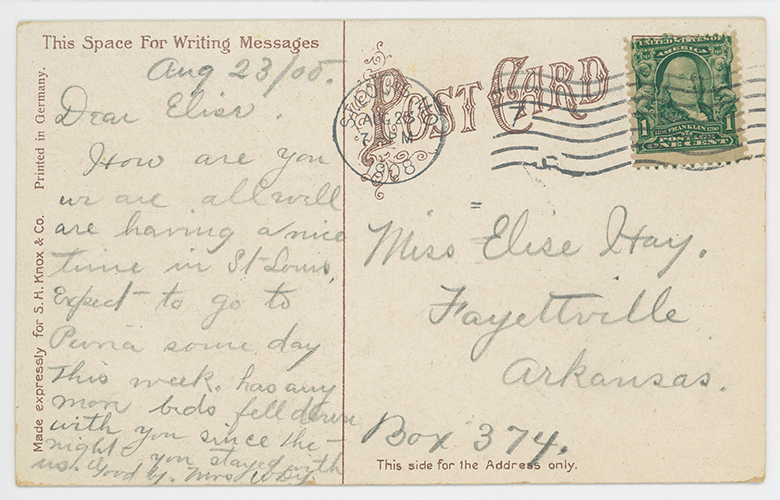 This Space For Writing Messages
Aug 23/08.
Dear Elise.
How are you
we are all well
are having a nice
time in St Louis,
Expect to go to
Peoria some day
this week. has any
more beds fell down
with you since the
night you stayed with
us. Good by. Mrs
Made expressly for S.H. Knox & Co. Printed in Germany.
POST CARD
ST. LOUIS, MO
AUG 23
7 PM
1908
UNITED STATES OF
AMERICA
1 FRANKLIN 1
POSTAGE
ONE CENT
Miss Elise Hay.
Fayettville
Arkansas.
Box 374.
This side for the Address only.